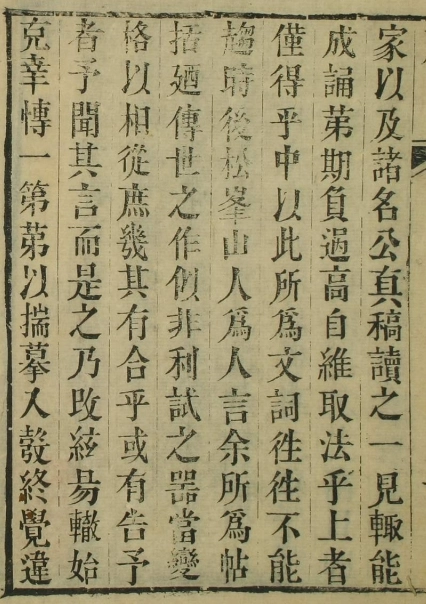 家以及諸名公真稿讀之一見輙能
成誦苐期負過高自維取法乎上者
僅得乎中以此所為文詞徃徃不能
趨時後松峯山人為人言余所為帖
括廼傳世之作似非利試之器當變
格以相從庶幾其有合乎或有告予
者予聞其言而是之乃改絃昜轍始
克幸慱一第苐以揣摹入彀終覺違